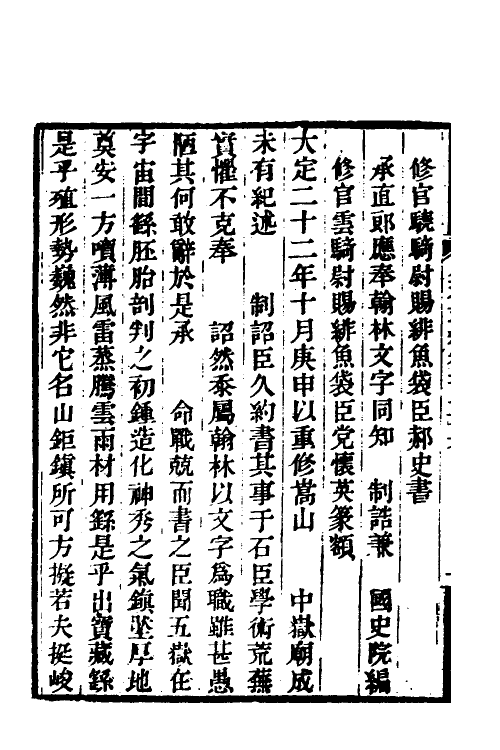 修官驍騎尉賜緋魚袋臣郝史書
承直郎應奉翰林文字同知　制誥兼　國史院編
修官雲騎尉賜緋魚袋臣党懷英篆額
大定二十二年十月庚申以重修嵩山　中嶽廟成
未有紀述　制詔臣久約書其事于石臣學術荒蕪
實懼不克奉　詔然忝屬翰林以文字爲職雖甚愚
陋其何敢辭於是承　命戰兢而書之臣聞五嶽在
宇宙間繇胚胎剖判之初鍾造化神秀之氣鎮埊厚地
奠安一方噴薄風雷蒸騰雲雨材用繇是乎出寶藏繇
是乎殖形勢巍然非它名山鉅鎮所可方擬若夫挺峻